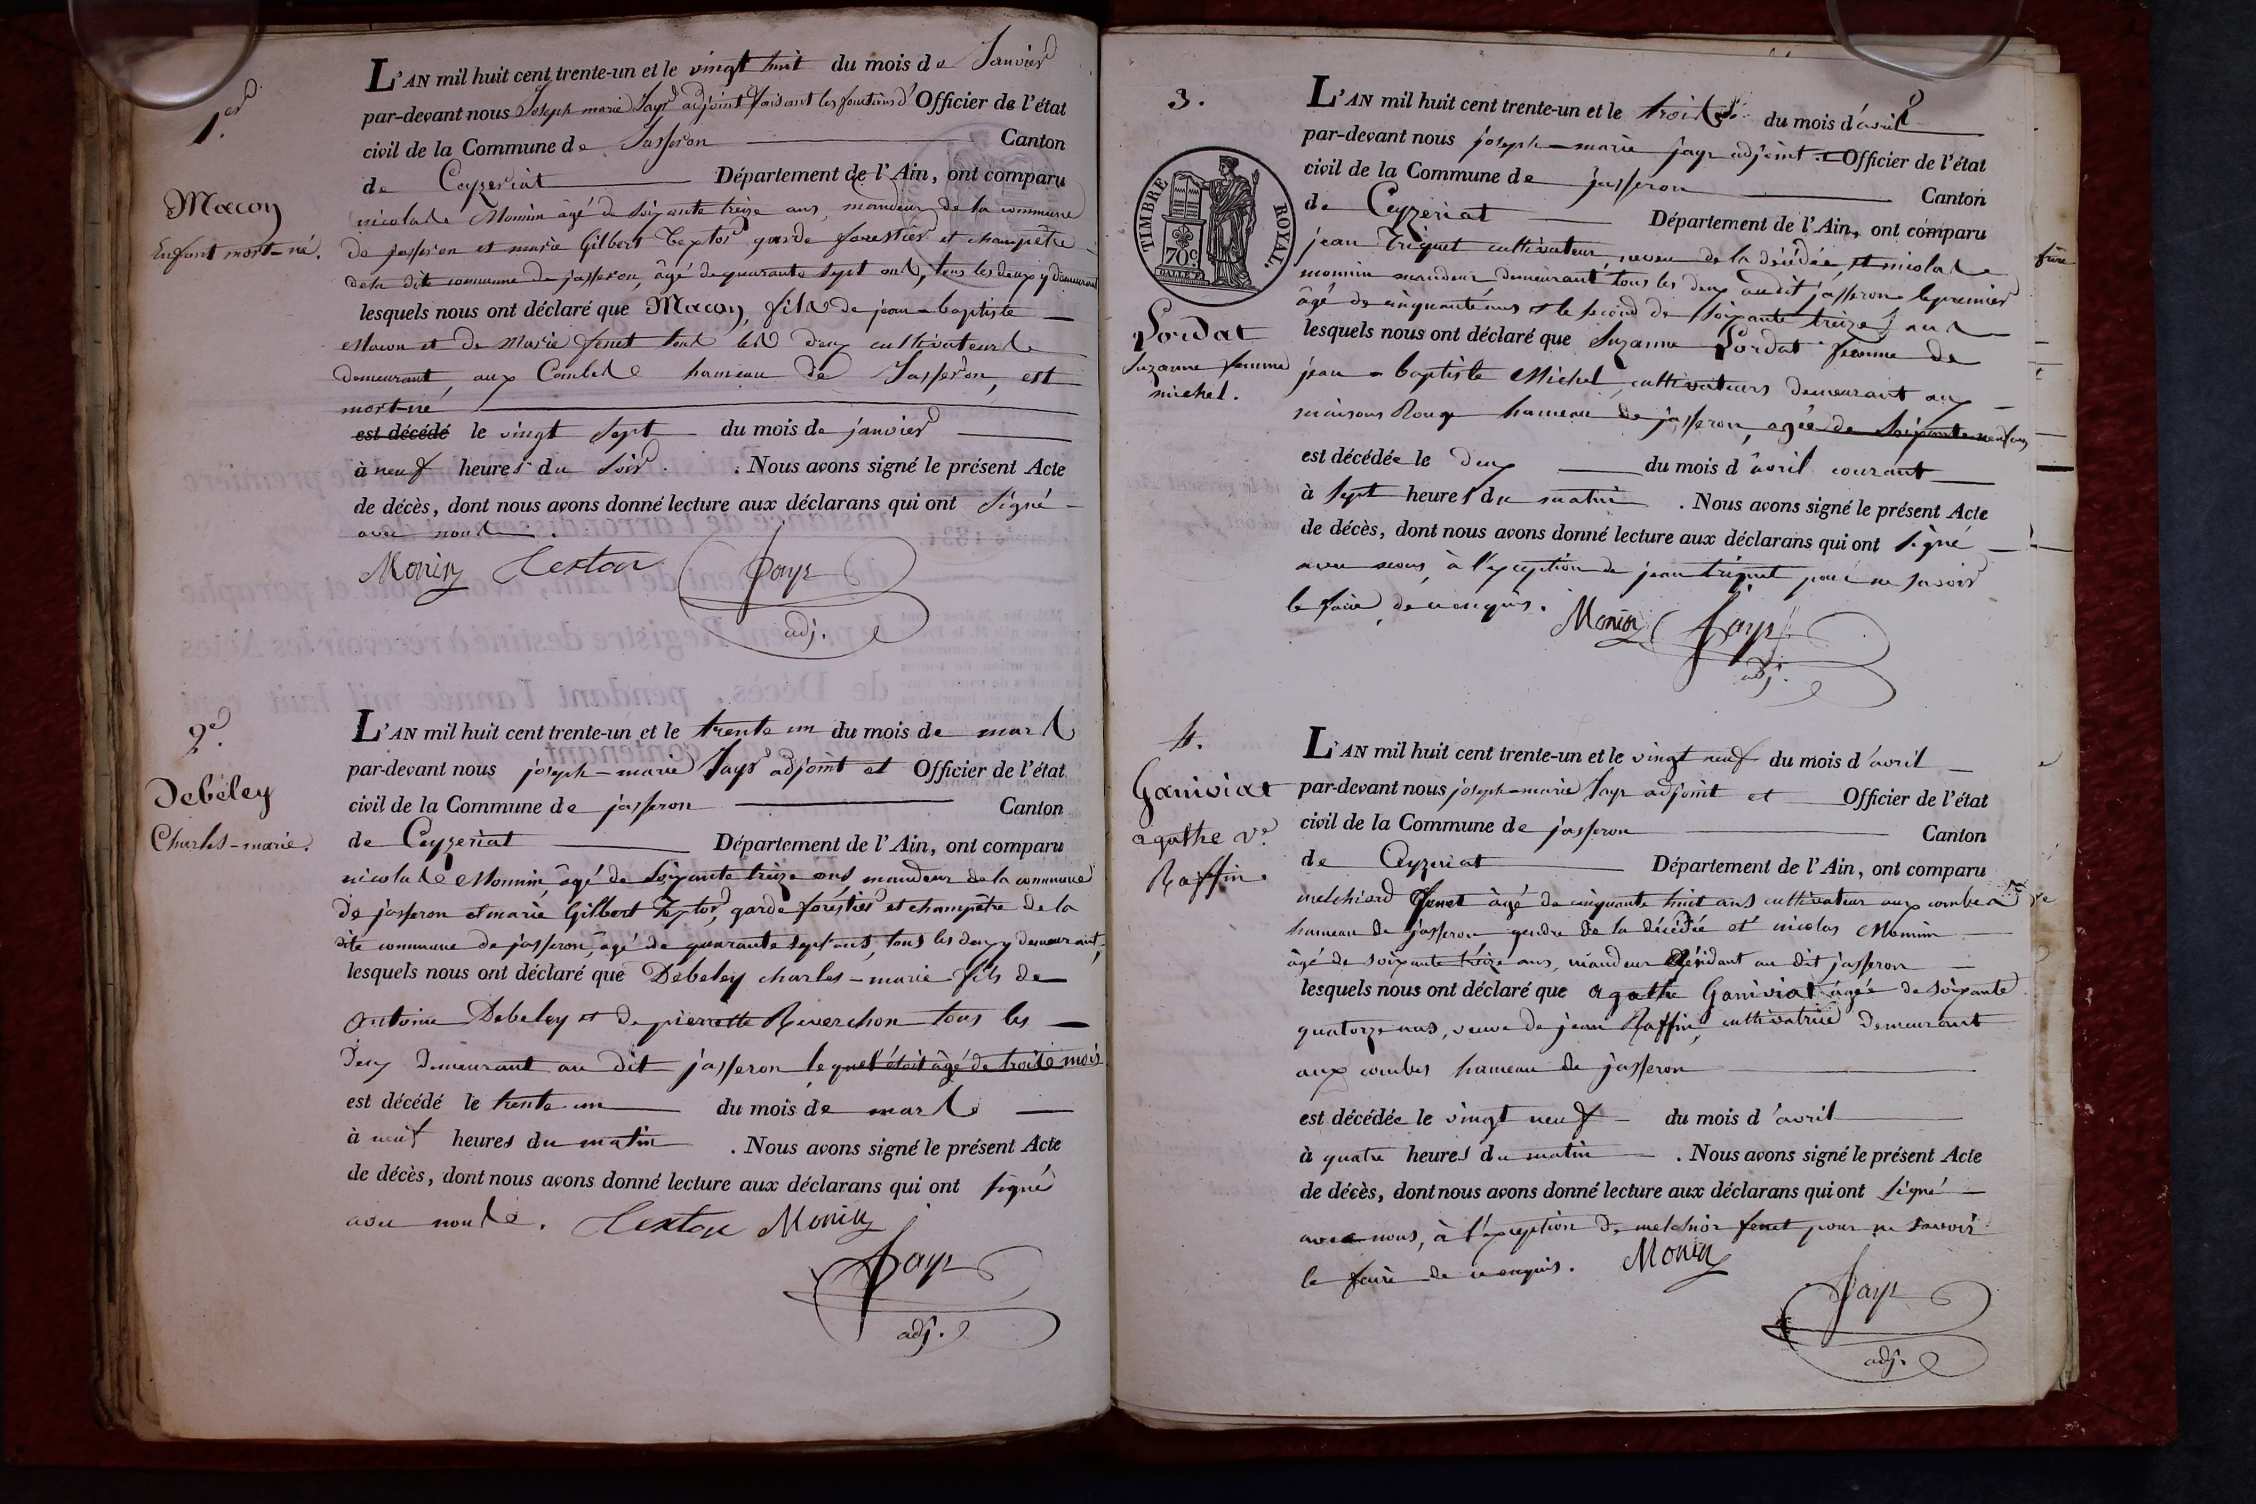 1.er
Macon
Enfant mort-né.
L'AN mil huit cent trente-un et le vingt huit du mois de Janvier
par-devant nous Joseph marie Jayr adjoint faisant les fonctions d'Officier de l'état
civil de la Commune de Jasseron Canton
de Ceyzeriat Département de l'Ain, ont comparu
nicolas Monnin âgé de soixante treize ans, mandeur de la commune
de jasseron et marie Gilbert Textor garde forestier et champêtre
de la dite commune de jasseron, âgé de quarante sept ans, tous les deux y demeurant
lesquels nous ont déclaré que Macon, fils de jean-baptiste
Macon et de Marie fenet tous les deux cultivateurs
demeurant, aux Combes hameau de Jasseron, est
mort-né
est décédé le vingt sept du mois de janvier
à neuf heures du soir. . Nous avons signé le présent Acte
de décès, dont nous avons donné lecture aux déclarans qui ont signé
avec nous.
Monin Textor Jayr
adj.
2.e
Debéley
Charles-marie.
L'AN mil huit cent trente-un et le trente un du mois de mars
par-devant nous joseph-marie Jayr adjoint et Officier de l'état
civil de la Commune de jasseron Canton
de Ceyzeriat Département de l'Ain, ont comparu
nicolas Monnin âgé de soixante treize ans mandeur de la commune
de jasseron et marie Gilbert Textor, garde forestier et champêtre de la
dite commune de jasseron, âgé de quarante sept ans, tous les deux y demeurant,
lesquels nous ont déclaré que Debeley charles-marie fils de
Antoine Debeley et de pierrette Reverchon tous les
deux demeurant au dit jasseron lequel était âgé de trois mois
est décédé le trente un du mois de mars
à neuf heures du matin . Nous avons signé le présent Acte
de décès, dont nous avons donné lecture aux déclarans qui ont signé
avec nous. Textor Monin
Jayr
adj.
3.
TIMBRE ROYAL.
70c
Lordat
Suzanne femme
michel.
L'AN mil huit cent trente-un et le trois du mois d'avril
par-devant nous joseph-marie jayr adjoint et Officier de l'état
civil de la Commune de jasseron Canton
de Ceyzeriat Département de l'Ain, ont comparu
jean triquet cultivateur, neveu de la décédée, et nicolas
monnin mandeur demeurant tous les deux au dit jasseron le premier
âgé de cinquante ans et le second de soixante treize ans
lesquels nous ont déclaré que Suzanne Lordat femme de
jean-baptiste Michel, cultivateurs demeurant aux
maisons Rouge hameau de jasseron, agée de soixante neuf ans
est décédée le deux du mois d'avril courant
à sept heures du matin . Nous avons signé le présent Acte
de décès, dont nous avons donné lecture aux déclarans qui ont signé
avec nous, à l'exception de jean triquet pour ne savoir
le faire de ce enquis. Monin Jayr
adj.
4.
Ganiviat
agathe v.e
Raffin.
L'AN mil huit cent trente-un et le vingt neuf du mois d'avril
par-devant nous joseph-marie Jayr adjoint et Officier de l'état
civil de la Commune de jasseron Canton
de Ceyzeriat Département de l'Ain, ont comparu
melchiord fenet âgé de cinquante huit ans cultivateur aux combes
hameau de jasseron gendre de la décédée et nicolas Monnin
âgé de soixante treize ans, mandeur résidant au dit jasseron
lesquels nous ont déclaré que agathe Ganiviat âgée de soixante
quatorze ans, veuve de jean Raffin, cultivatrice demeurant
aux combes hameau de jasseron
est décédée le vingt neuf du mois d'avril
à quatre heures du matin . Nous avons signé le présent Acte
de décès, dont nous avons donné lecture aux déclarans qui ont signé
avec nous, à l'exception de melchior fenet pour ne savoir
le faire de ce enquis. Monin
Jayr
adj.